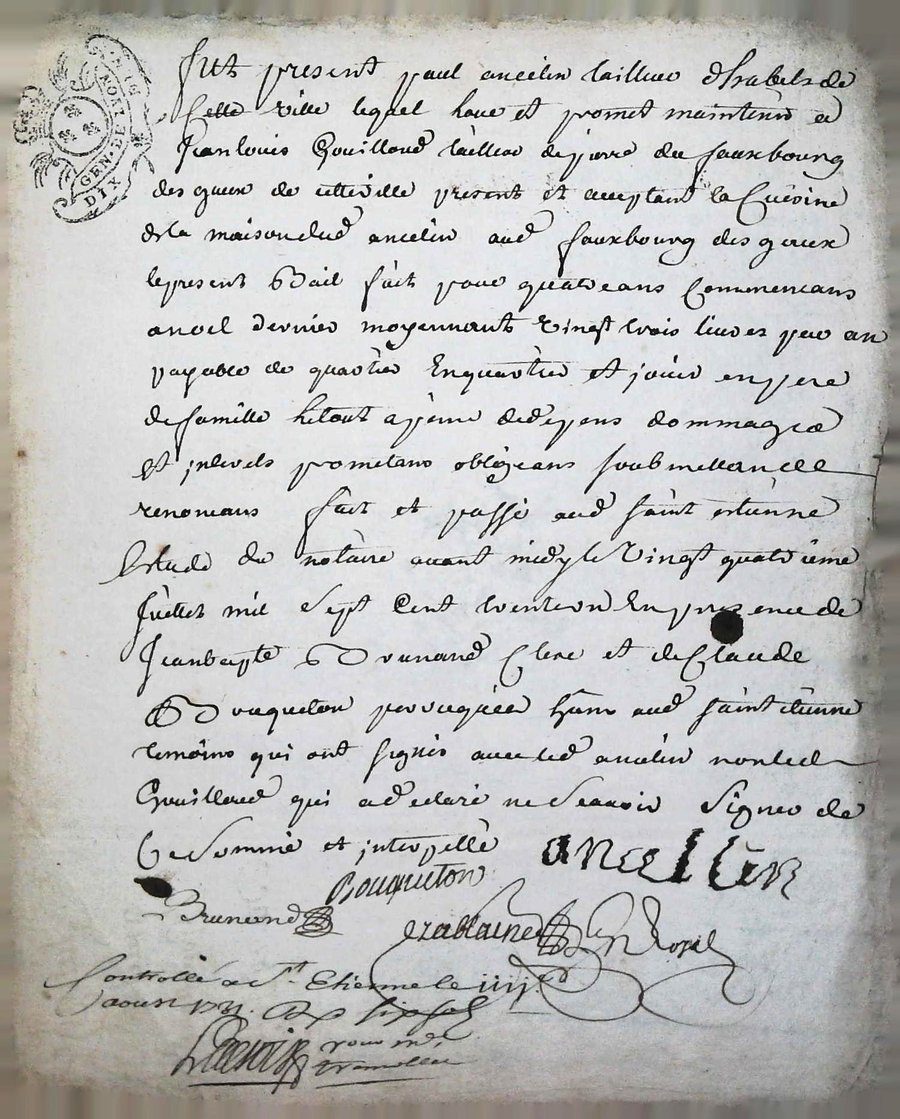 GEN. DE LYON
DIX
fut present paul ancelin tailleur dhabits de
Cette ville lequel loue et promet maintenir a
Jean louis Gouilloud tailleur de pierre du fauxbourg
des gaux de cette ville present et acceptant la Cuisine
de la maison dud ancelin aud fauxbourg des gaux
le present Bail fait pour quatre ans Commencans
a noel dernier moyennant Vingt trois livres par an
payable de quartier En quartier et jouir en pere
de famille le tout a peine de depens dommages
et interets prometans obligeans soubmettans
renoncans fait et passé aud saint etienne
Estude du notaire avant midy le Vingt quatrieme
Juillet mil Sept Cent trente un En presence de
Jean bapte Brunand Clerc et de Claude
Bouqueton perruquier hants aud saint etienne
temoins qui ont signés avec led ancelin non led
Gouilloud qui a declaré ne Scavoir Signer de
Ce Sommé et interpellé
ancelin
Bouqueton
Brunand
Controllé a St. Etienne le
aoust 1731. six sols